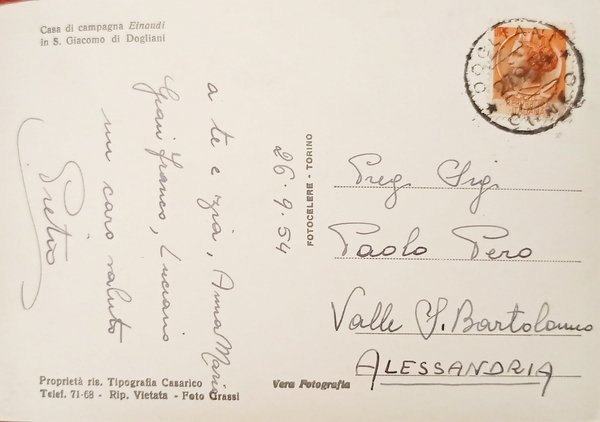 Casa di campagna Einaudi
in S. Giacomo di Dogliani
a te e zia, Anna Maria
Gian Franco, Luciano
un caro saluto
Pietro
26.9.54
FOTOCELERE - TORINO
DOGLIANI
CUNEO
Preg. Sig.
Paolo Pero
Valle S. Bartolomeo
ALESSANDRIA
Proprietà ris. Tipografia Casarico
Telef. 71-68 - Rip. Vietata - Foto Grassi
Vera Fotografia